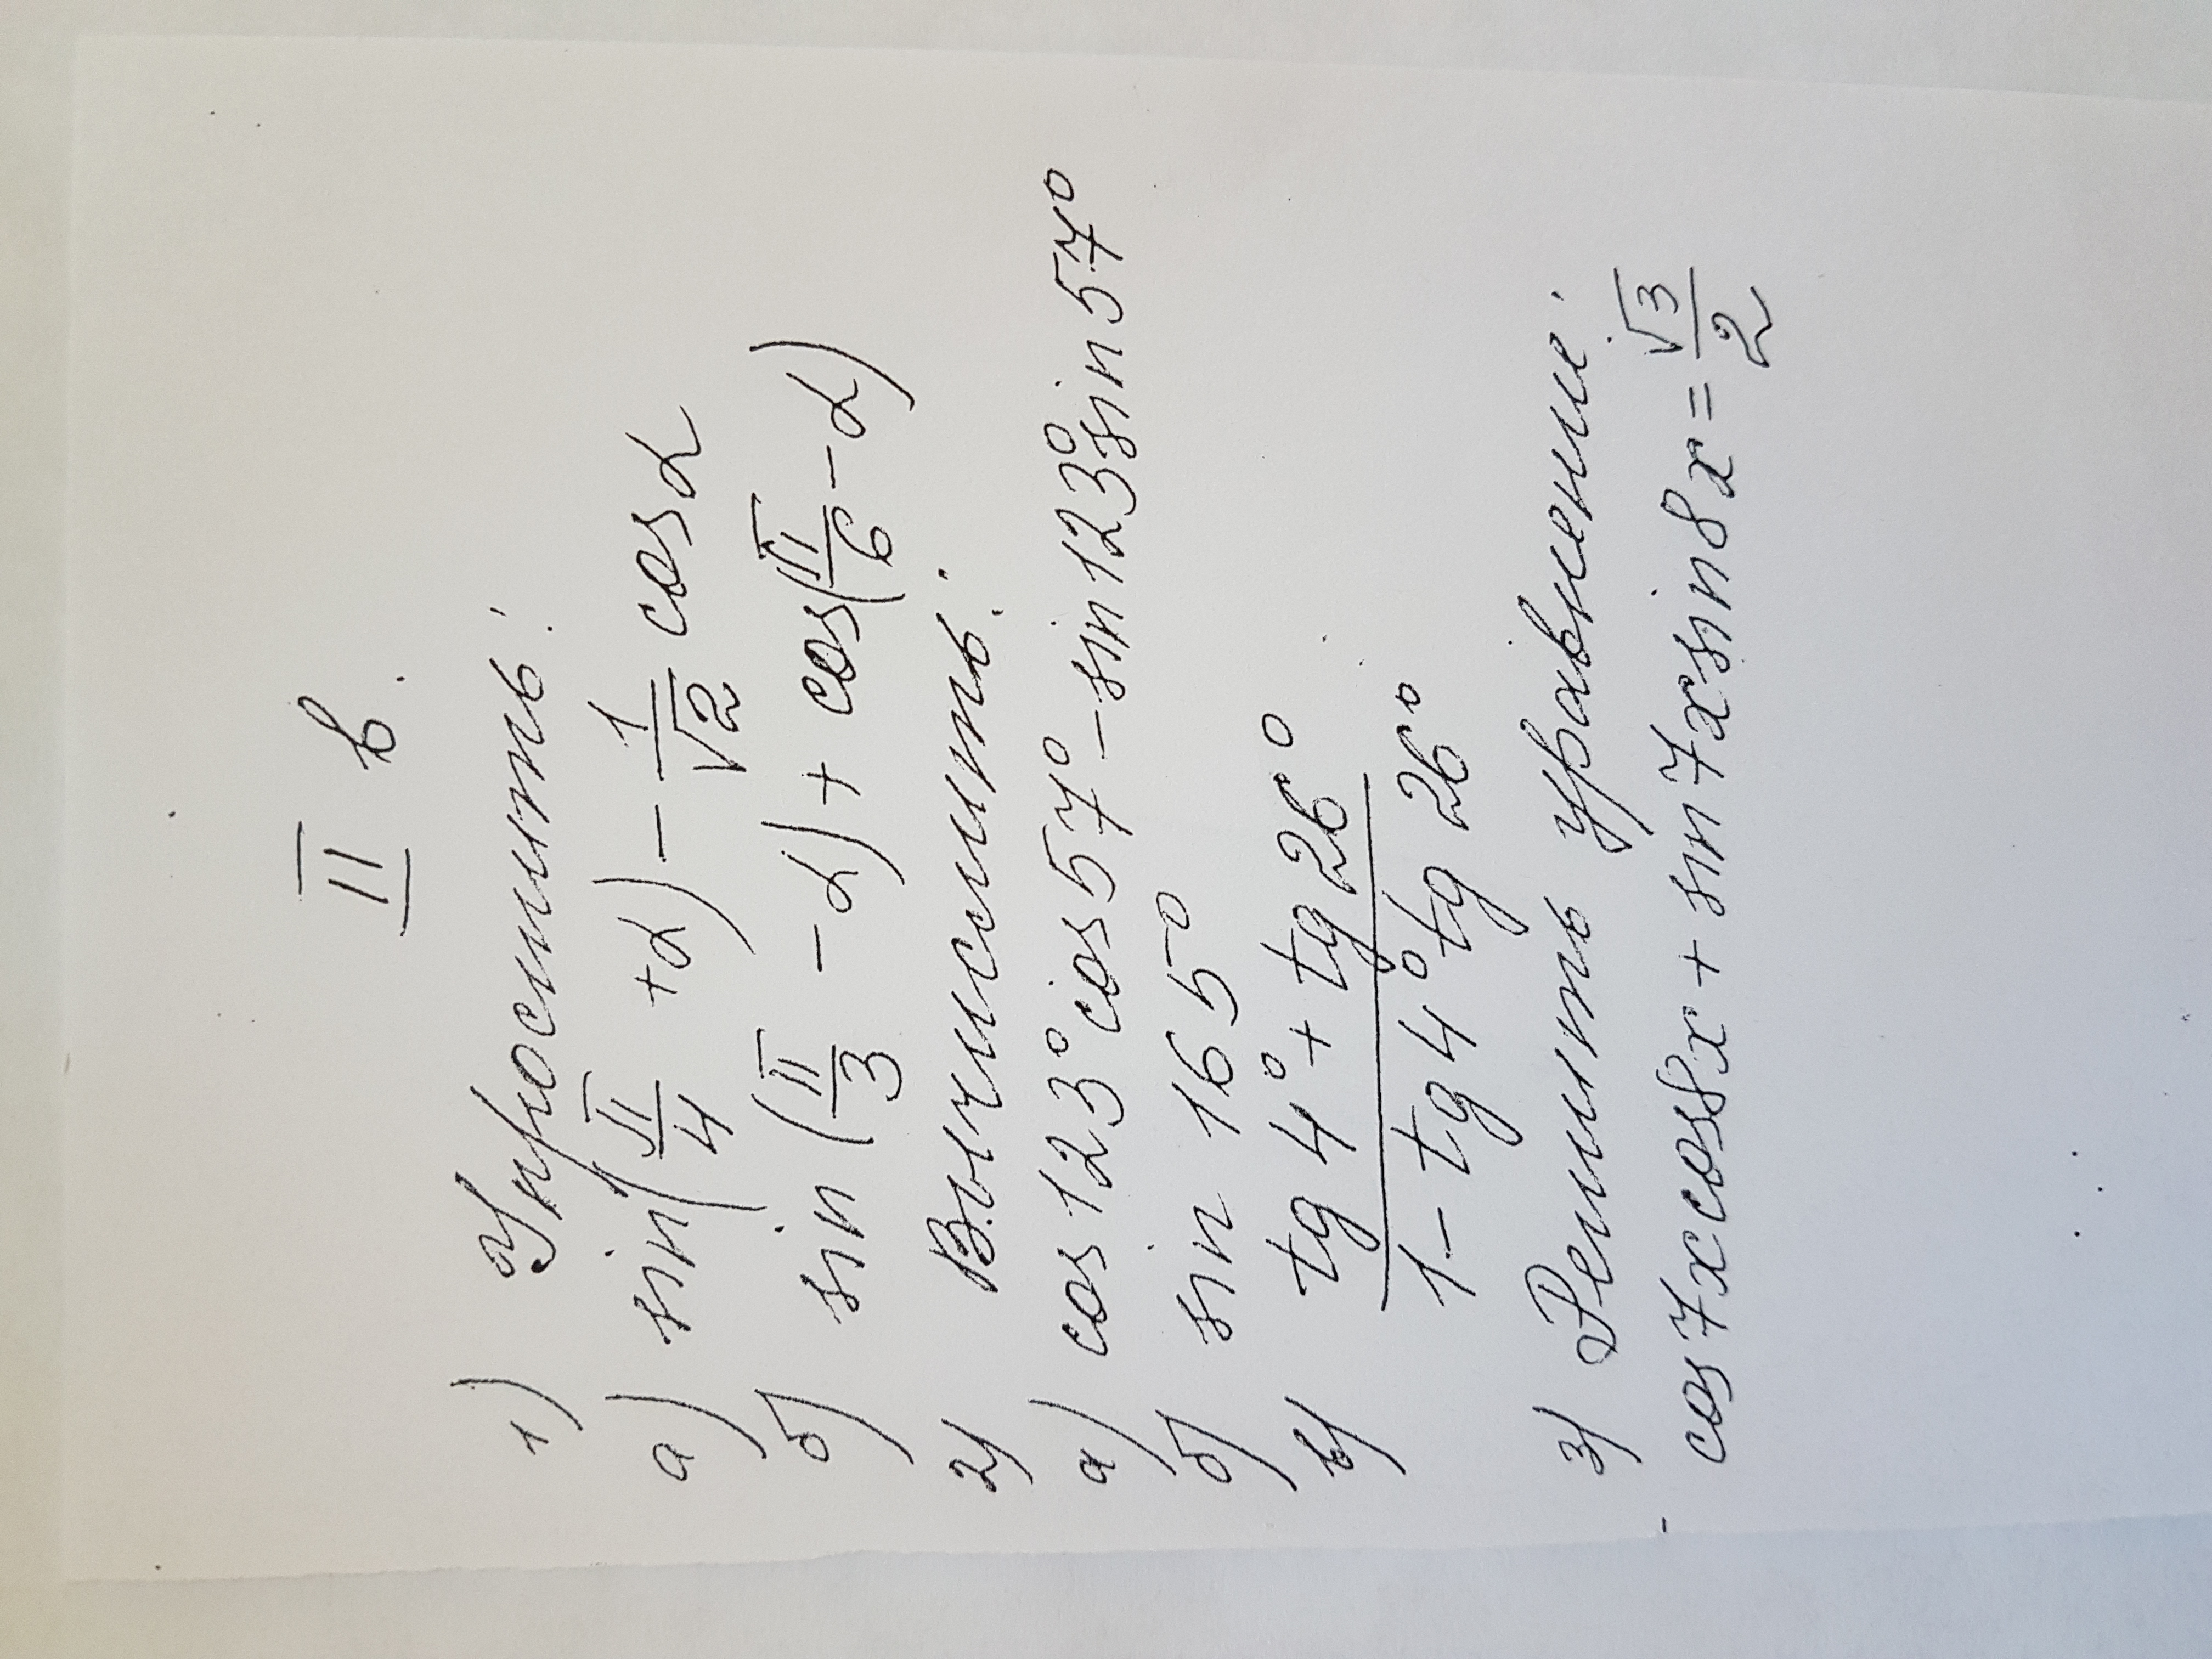 II в.
1) Упростить:
а) sin(π/4 + α) − 1/√2 cos α
б) sin(π/3 − α) + cos(π/6 − α)
2) Вычислить:
а) cos 123° cos 57° − sin 123° sin 57°
б) sin 165°
в) (tg 4° + tg 26°)/(1 − tg 4° tg 26°)
3) Решить уравнение:
cos 7x cos 8x + sin 7x sin 8x = √3/2